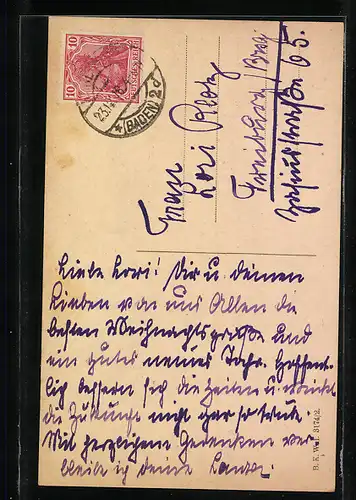 10 10
DEUTSCHES REICH
23.1
* (BADEN) 2d
Frau
Lori Plotz
Freiburg / Brsg
straße 65.
Liebe Lori! Dir u. deinen
Lieben von uns Allen die
besten Weihnachtsgrüße und
ein gutes neues Jahr. Hoffent-
lich bessern sich die Zeiten u.
die Zukunft nicht gar so trübe.
Mit herzlichem Gedenken ver-
bleibe ich deine
B. K. W. I. 3174/2.